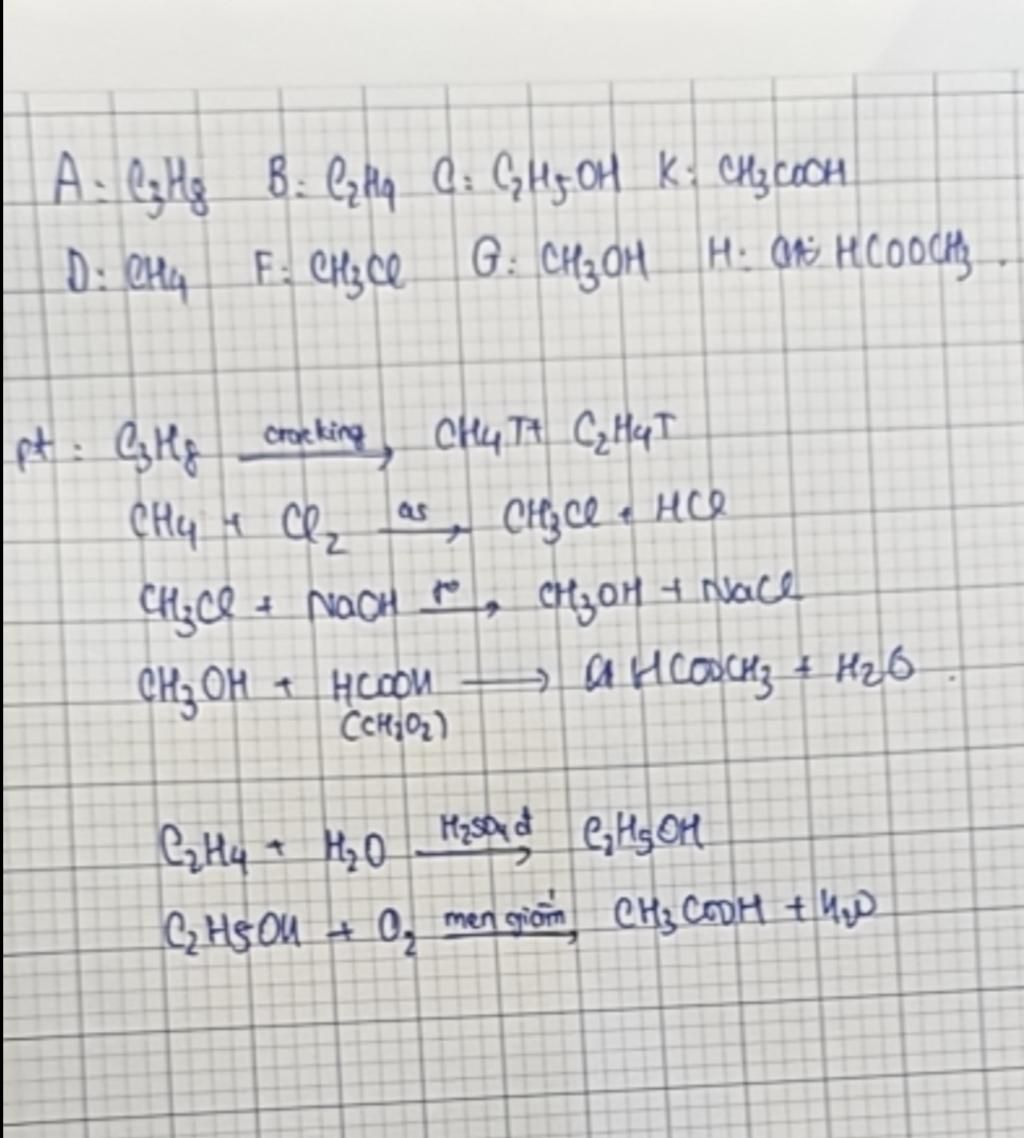 A: C₃H₈ B: C₂H₄ C: C₂H₅OH K: CH₃COOH
D: CH₄ F: CH₃Cl G: CH₃OH H: HCOOCH₃.
pt: C₃H₈ cracking→ CH₄↑ + C₂H₄↑
CH₄ + Cl₂ as→ CH₃Cl + HCl
CH₃Cl + NaOH t°→ CH₃OH + NaCl
CH₃OH + HCOOH → HCOOCH₃ + H₂O.
(CH₂O₂)
C₂H₄ + H₂O H₂SO₄đ→ C₂H₅OH
C₂H₅OH + O₂ men giấm→ CH₃COOH + H₂O